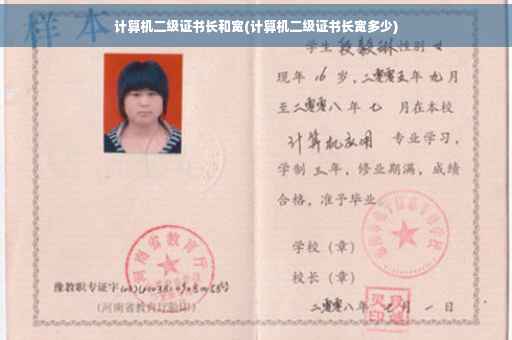 计算机二级证书长和宽(计算机二级证书长宽多少)
样本
学生 段毅琳 性别 女
现年 16 岁，二零零五年 九 月
至二零零八 年 七 月在本校
计算机应用 专业学习，
学制 三 年，修业期满，成绩
合格，准予毕业
学校（章）
校长（章）
二零零八年 七 月 一 日
河南省教育厅
豫教职专证字
(河南省教育厅验印)